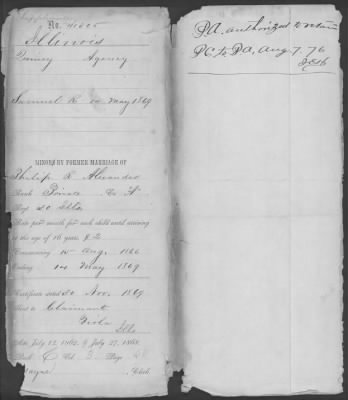 Illinois
Quincy Agency
Samuel R. 14 May 1869
MINORS BY FORMER MARRIAGE OF
Philip R. Alexander
Rank Private Co.
Regt 20 Ills
Rate per month for each child until arriving
at the age of 16 years, $2
Commencing Aug. 1866
Ending 14 May 1869
Certificate 20 Nov. 1869
Claimant
Viola
Ills
Acts July 14, 1862, & July 27, 1868.
Book C Vol. 3 Page
Clerk.
P.A. authorized to
P.C. to P.A. Aug 7. 76